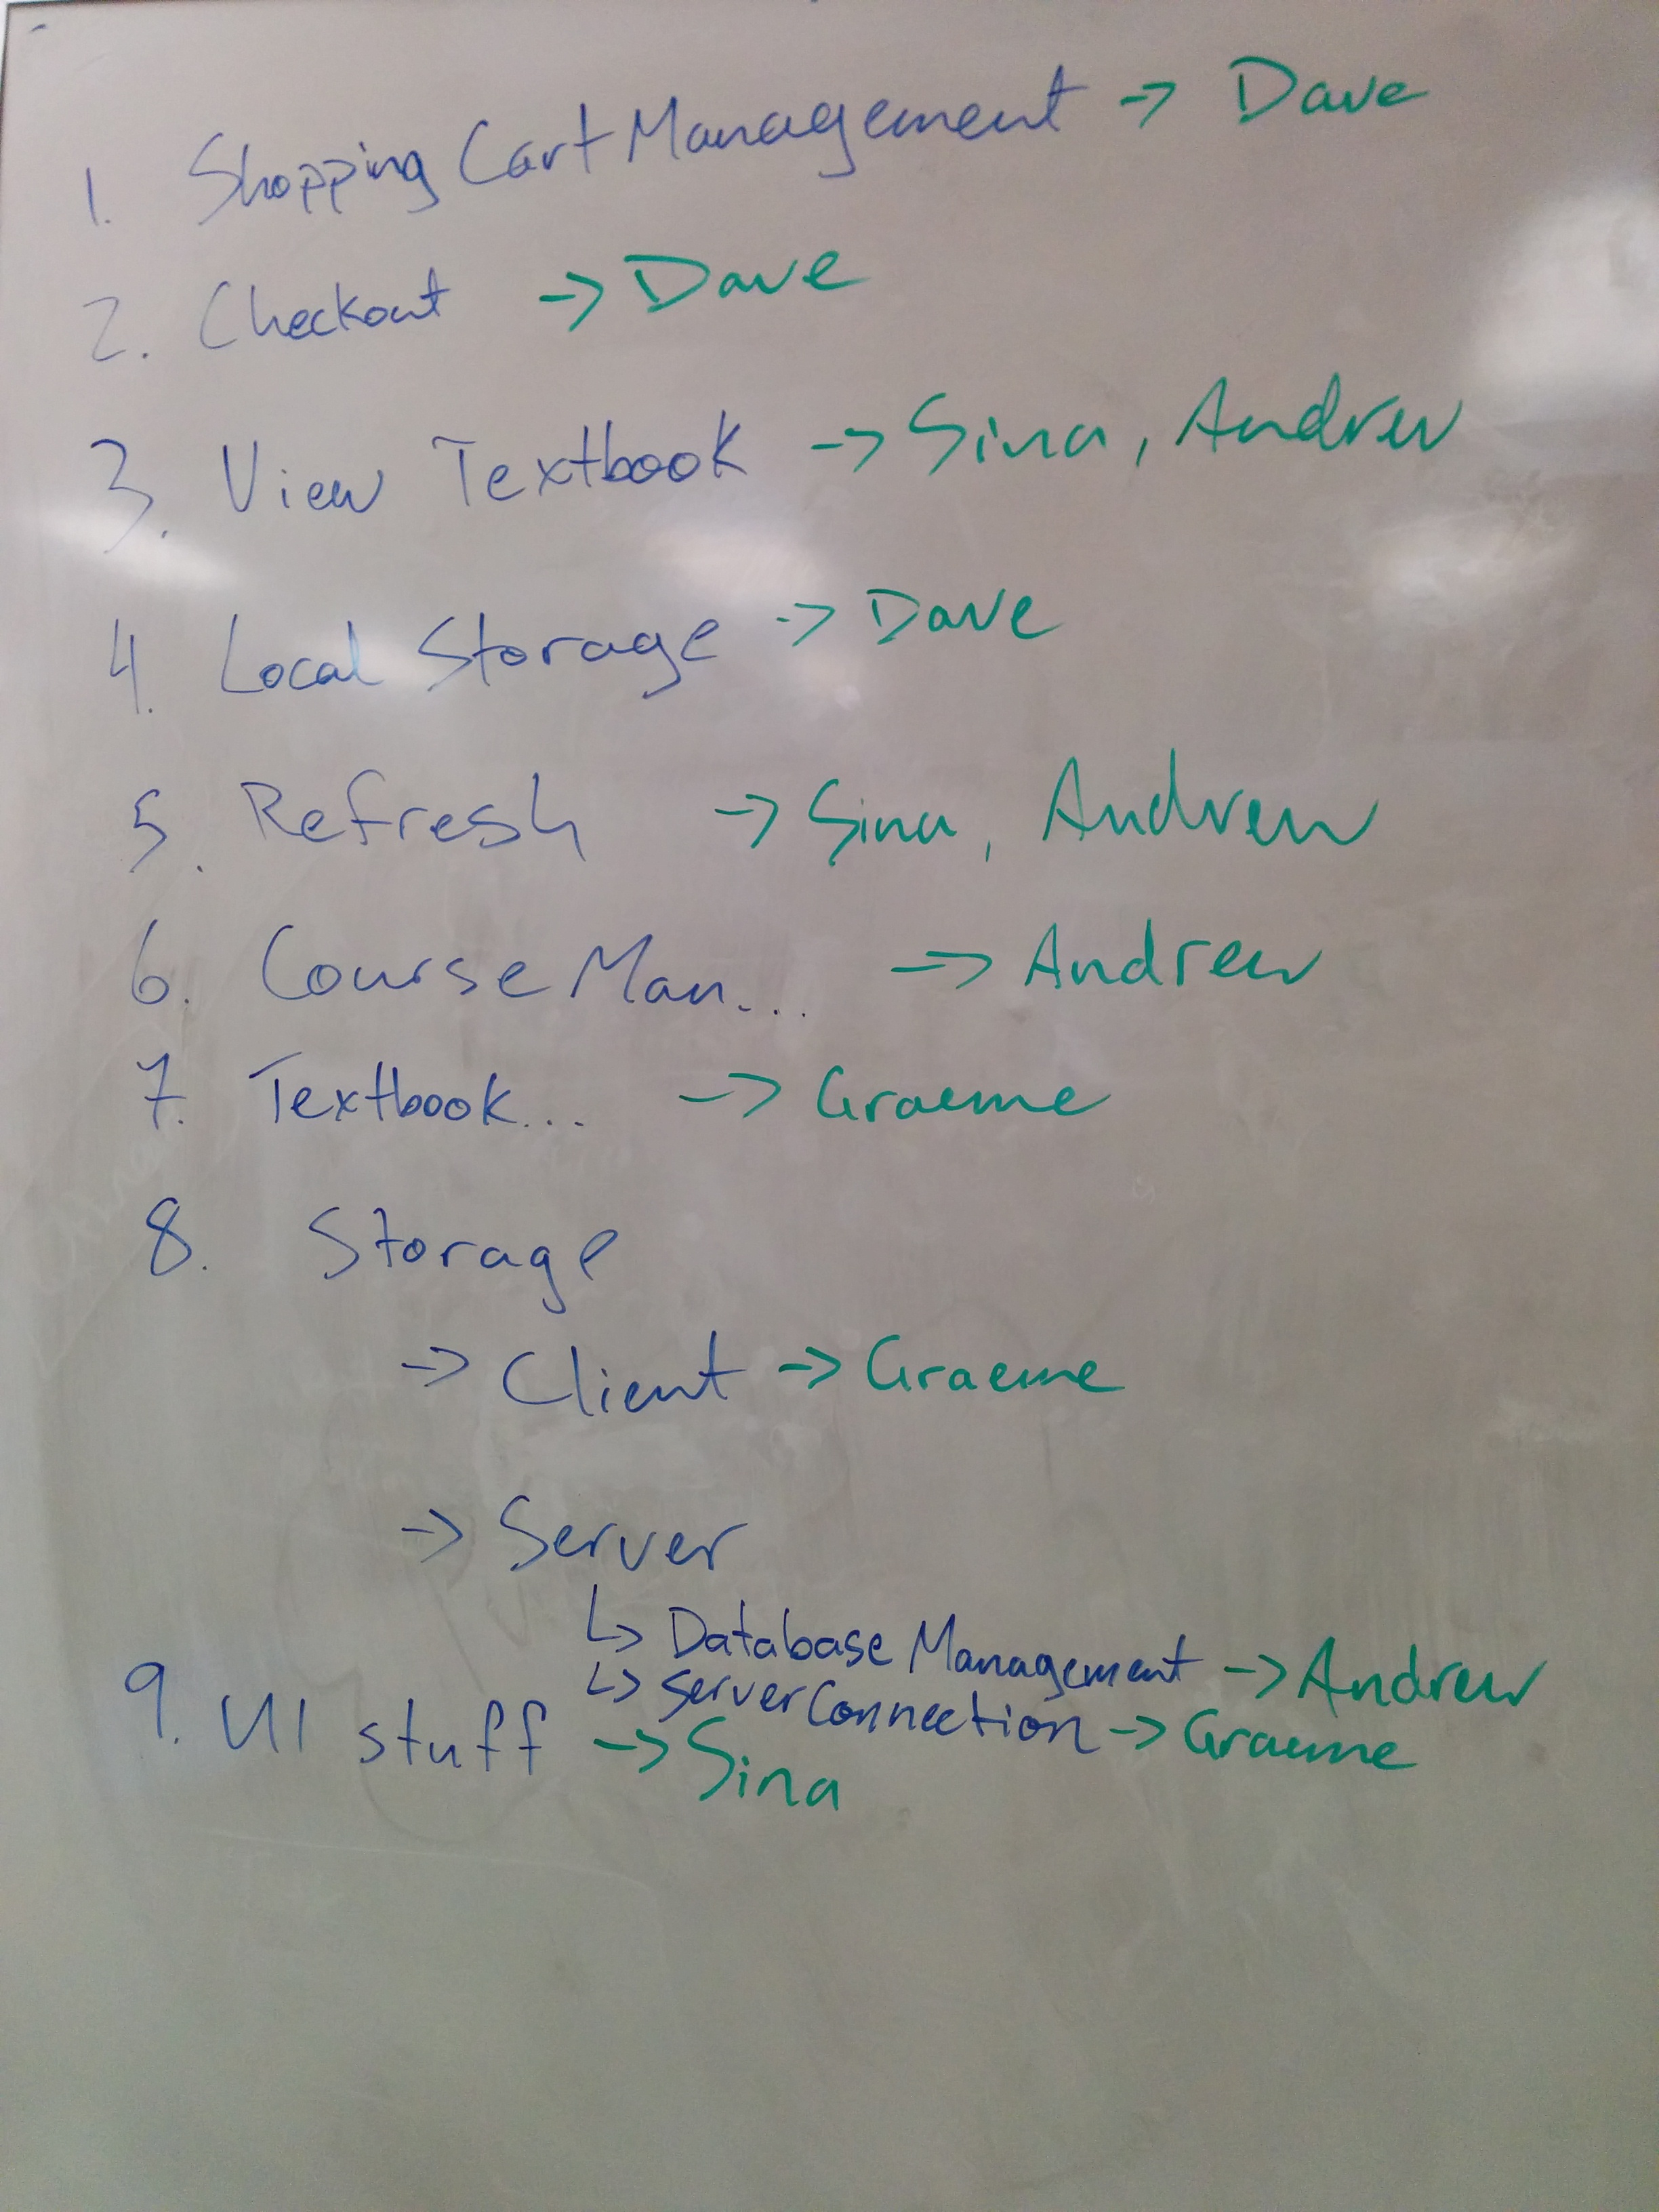 1. Shopping Cart Management -> Dave
2. Checkout -> Dave
3. View Textbook -> Sina, Andrew
4. Local Storage -> Dave
5. Refresh -> Sina, Andrew
6. Course Man... -> Andrew
7. Textbook... -> Graeme
8. Storage
-> Client -> Graeme
-> Server
↳ Database Management -> Andrew
↳ Server Connection -> Graeme
9. UI stuff -> Sina